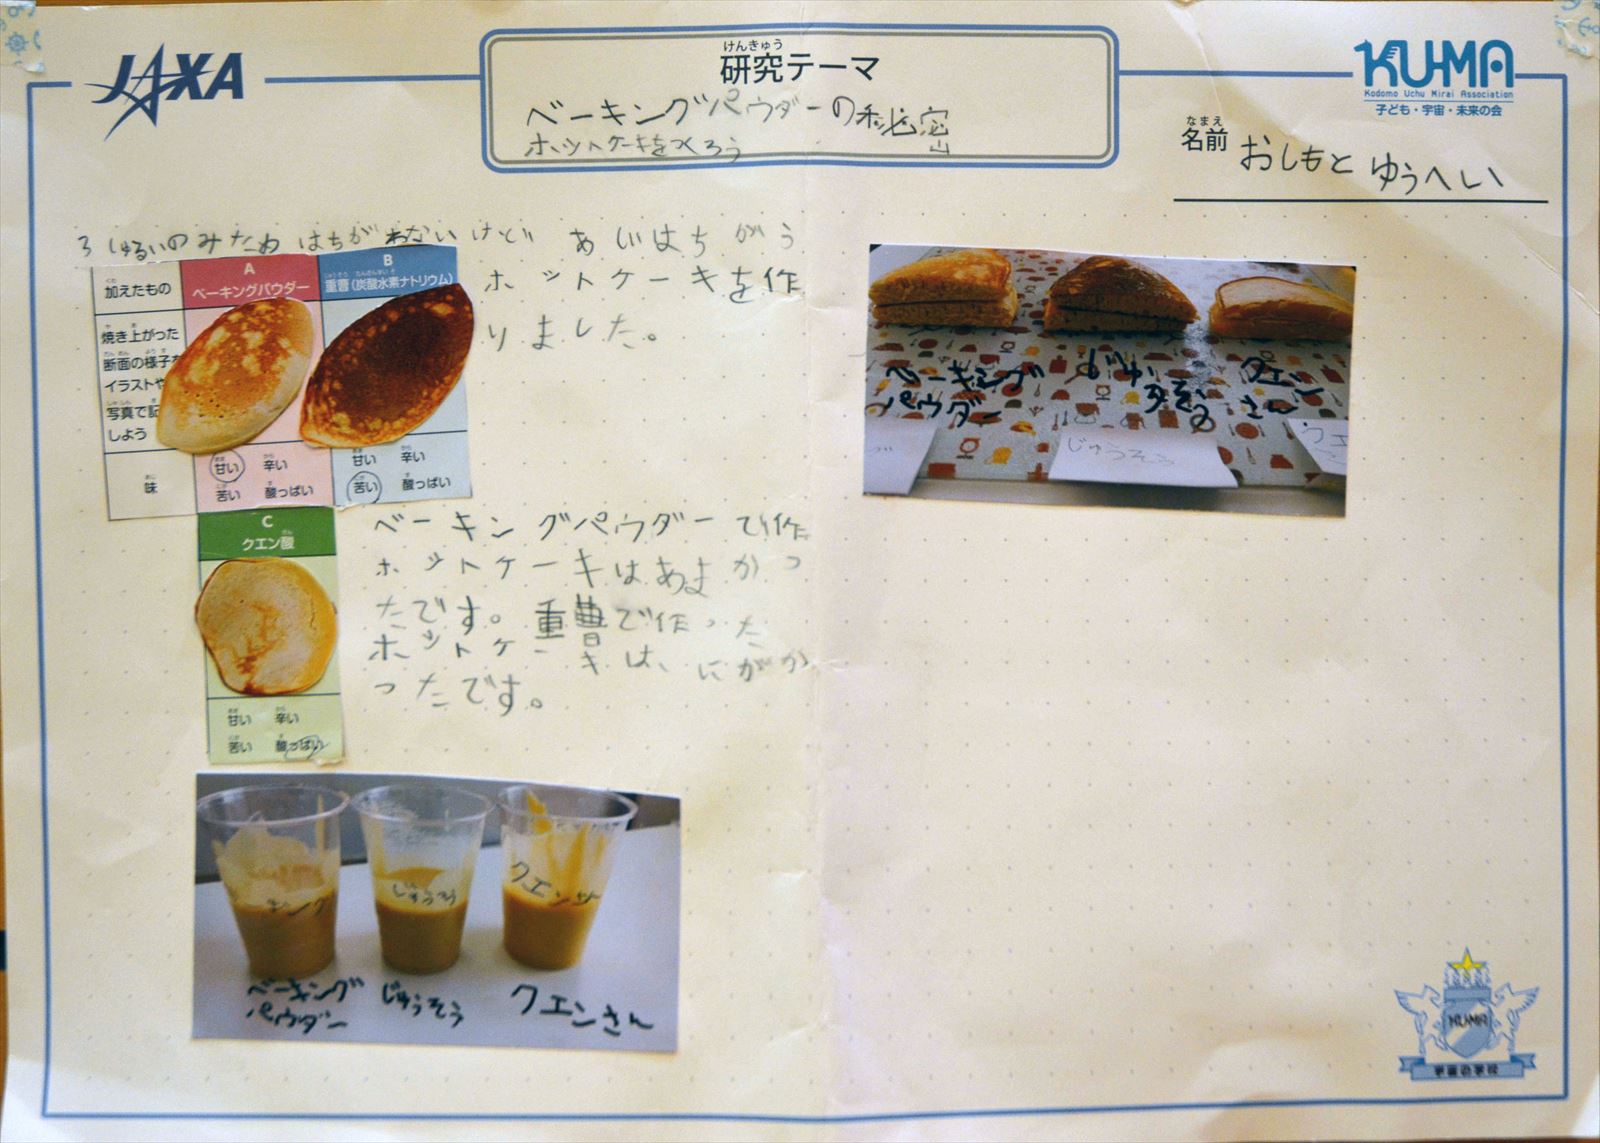 JAXA
けんきゅう
研究テーマ
ベーキングパウダーの秘密
ホットケーキをつくろう
KU-MA
Kodomo Uchu Mirai Association
子ども・宇宙・未来の会
なまえ
名前 おしもと ゆうへい
3しゅるいのみためはちがわないけど あじはちがう
ホットケーキを作
りました。
くわ
加えたもの
A
ベーキングパウダー
B
じゅうそう たんさんすいそ
重曹(炭酸水素ナトリウム)
や あ
焼き上がった
だんめん ようす
断面の様子を
イラストや
しゃしん
写真で記
しよう
あじ
味
あま から
甘い 辛い
にが す
苦い 酸っぱい
あま から
甘い 辛い
にが す
苦い 酸っぱい
C
さん
クエン酸
あま から
甘い 辛い
にが す
苦い 酸っぱい
ベーキングパウダーで作
ホットケーキはあまかっ
たです。重曹で作った
ホットケーキは、にがか
ったです。
ベーキング
パウダー
じゅうそう
クエン
さん
じゅうそう
クエ
キング
じゅうそう
クエンサ
ベーキング
パウダー
じゅうそう
クエンさん
KU-MA
宇宙の学校